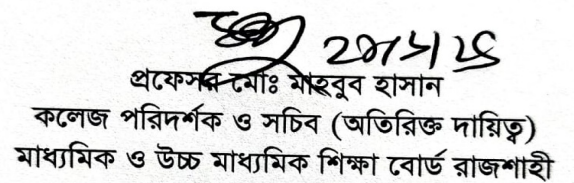 প্রফেসর মোঃ মাহবুব হাসান
কলেজ পরিদর্শক ও সচিব (অতিরিক্ত দায়িত্ব)
মাধ্যমিক ও উচ্চ মাধ্যমিক শিক্ষা বোর্ড রাজশাহী